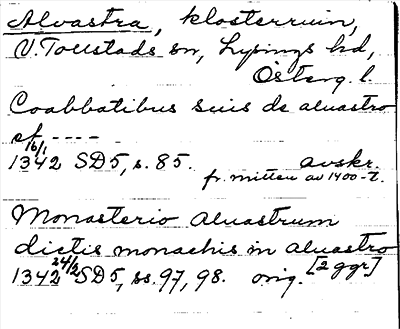 Alvastra, klosterruin,
V. Tollstads sn, Lysings hd,
Österg. l.
Coabbatibus suis de aluastro
et ----
16/1
1342 SD5, s. 85. avskr.
fr. mitten av 1400-t.
Monasterio aluastrum
dictis monachis in aluastro
1342 24/2 SD5, ss. 97, 98. orig. [2 ggr]